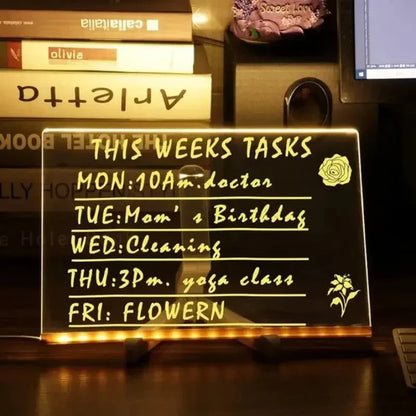 callaitalica
olivia
Arletta
THE HOTEL BOOK
THIS WEEKS TASKS
MON:10Am.doctor
TUE:Mom's Birthdag
WED:Cleaning
THU:3Pm. yoga class
FRI: FLOWERN